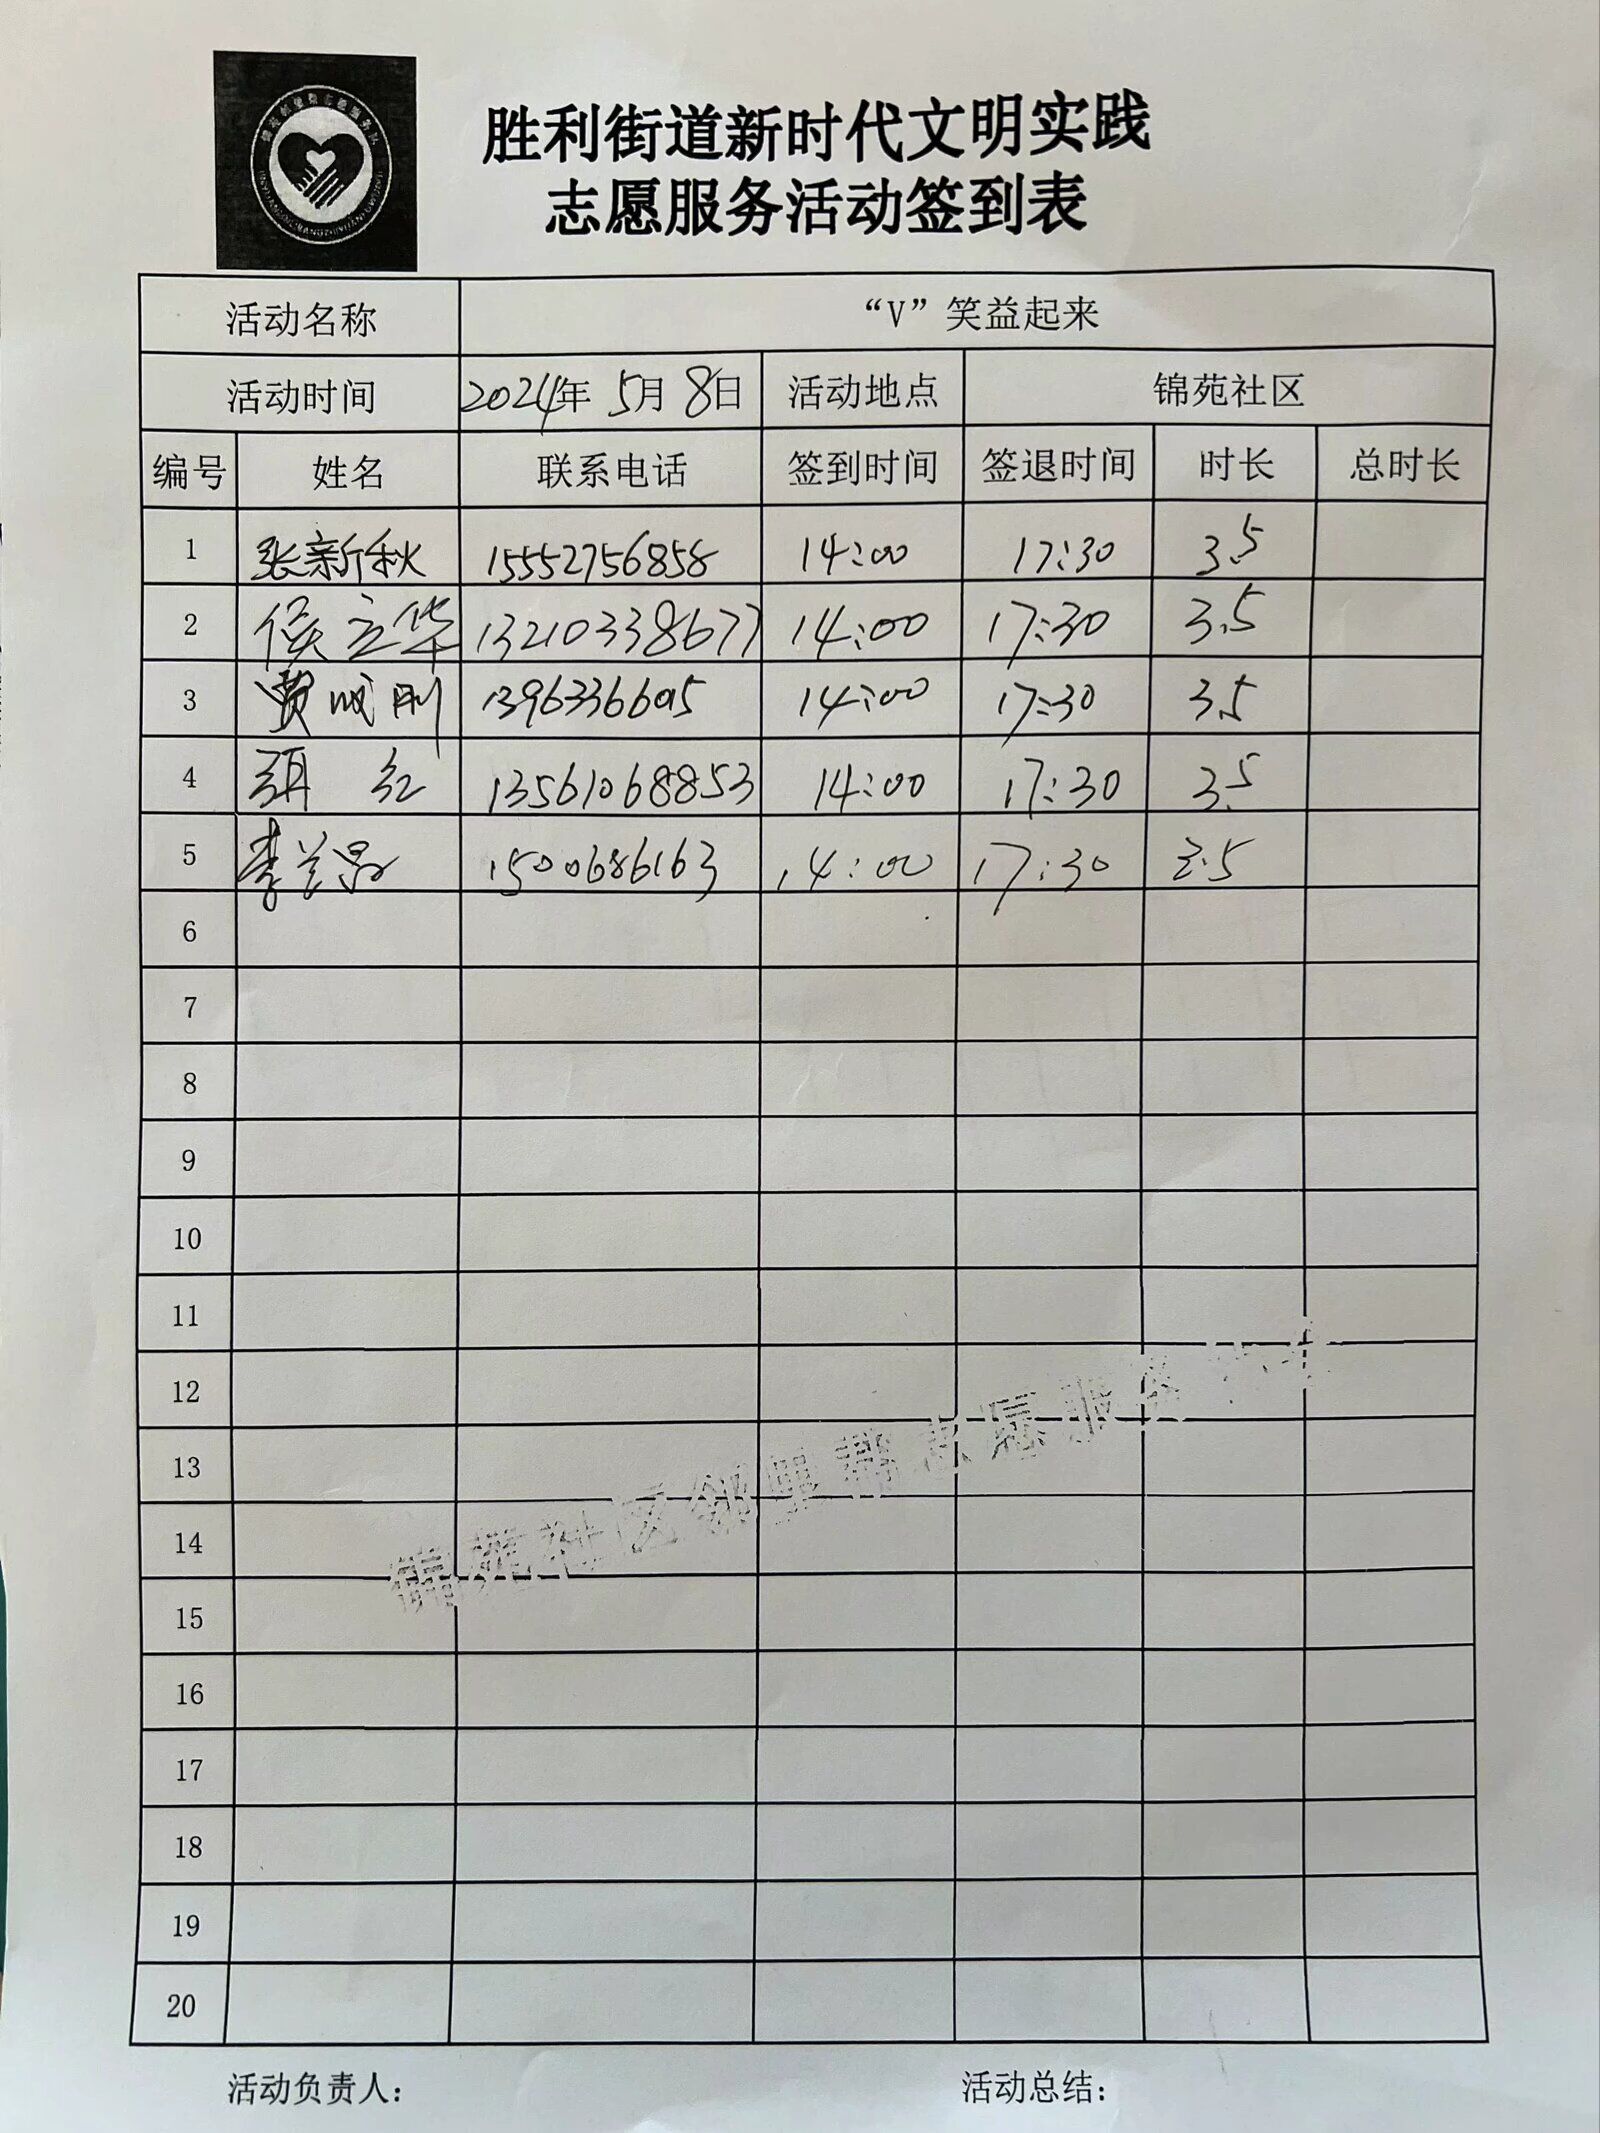 胜利街道新时代文明实践
志愿服务活动签到表
活动名称 “V”笑益起来
活动时间 2024年 5月 8日 活动地点 锦苑社区
编号 姓名 联系电话 签到时间 签退时间 时长 总时长
1 张新秋 15552756858 14:00 17:30 3.5
2 侯立华 13210338677 14:00 17:30 3.5
3 14:00 17:30 3.5
4 红 13561068853 14:00 17:30 3.5
5 李兰 15006686163 14:00 17:30 3.5
6
7
8
9
10
11
12
13
锦苑社区邻里帮志愿服务
14
15
16
17
18
19
20
活动负责人： 活动总结：